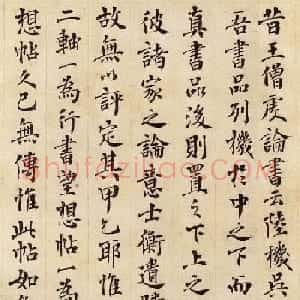 昔王僧虔論書云陸機吳
吾書品列機於中之下而
真書品後則置之下上之
彼諸家之論意士衡遺
故無以評定其甲乙耶惟
二軸一為行書望想帖一為
想帖久已無傳惟此帖如